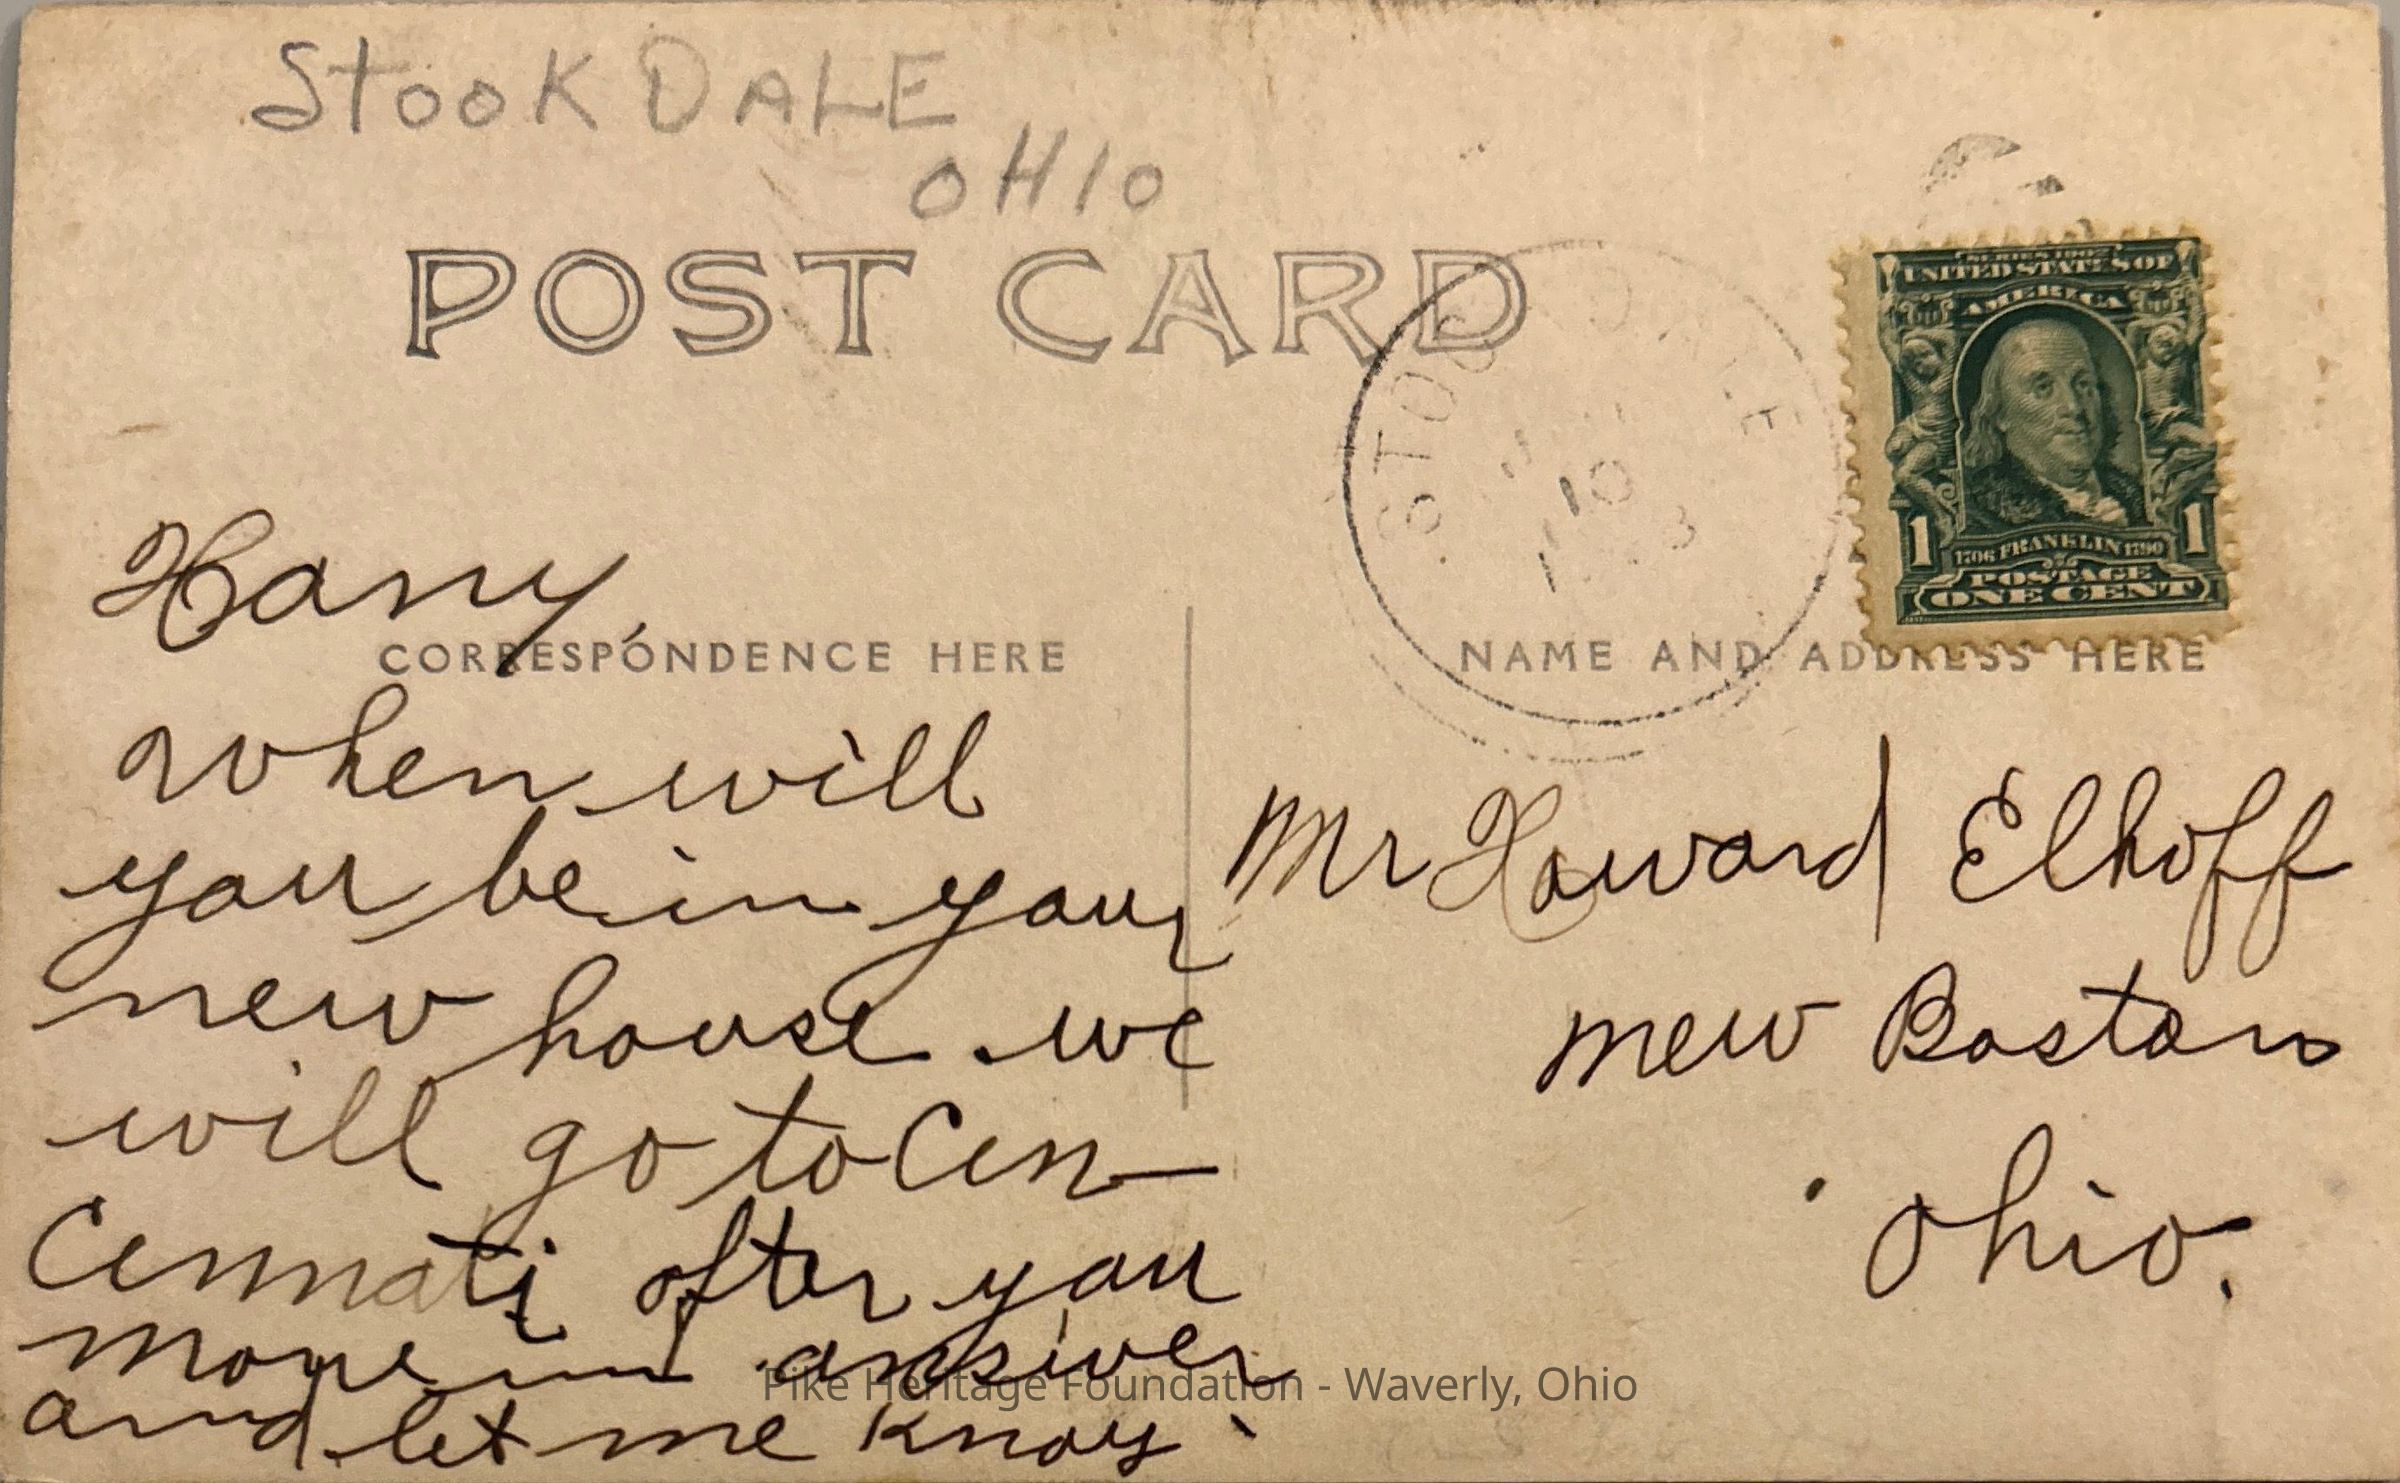 StooK DALE
OHIO
POST CARD
STOC
E
10
3
SERIES 1902
UNITED STATES OF
AMERICA
1 1
1706 FRANKLIN 1790
POSTAGE
ONE CENT
Harry,
CORRESPONDENCE HERE
NAME AND ADDRESS HERE
When will
you be in your
new house we
will go to Cin
Cennati after you
move in answer
and let me know.
Mr Howard Elhoff
New Boston
Ohio.
Pike Heritage Foundation - Waverly, Ohio